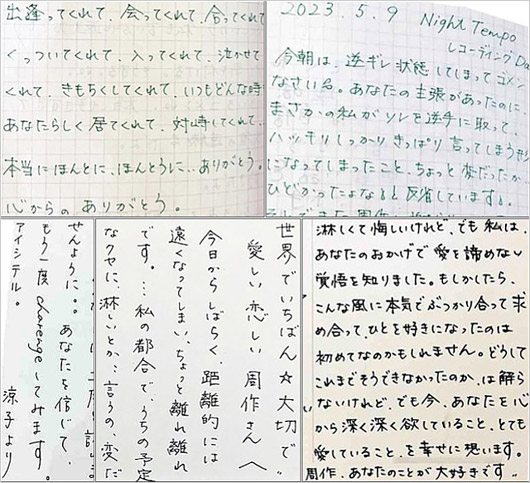 出逢ってくれて、会ってくれて、合ってくれて
くっついてくれて、入ってくれて、泣かせて
くれて、きもちくしてくれて、いつもどんな時
あなたらしく居てくれて、対峙してくれて、
本当にほんとに、ほんとうに…ありがとう。
心からの ありがとう。
2023.5.9 Night Tempo
レコーディングDa
今朝は、逆ギレ状態してしまってゴメン
なさい。あなたの主張があったのに
まさかの私がソレを逆手に取って、
ハッキリしっかりきっぱり言ってしまう形
になってしまったこと、ちょっと変だったか
ひどかったよなぁと反省しています。
世界でいちばん☆大切で
愛しい恋しい 周作さんへ
今日からしばらく、距離的には
遠くなってしまい、ちょっと離れ離れ
です。…私の都合で、うちの予定
なクセに、淋しいとか、言うの、変だ
せんように。。あなたを信じて、
もう一度 challengeしてみます。
アイシテル。
涼子より
淋しくて悔しいけれど、でも私は、
あなたのおかげで愛を諦めない
覚悟を知りました。もしかしたら、
こんな風に本気でぶつかり合って求
め合って、ひとを好きになったのは
初めてなのかもしれません。どうして
これまでそうできなかったのか、は解ら
ないけれど、でも今、あなたを心
から深く深く欲していること、とても
愛していること、を幸せに想います。
周作、あなたのことが大好きです。